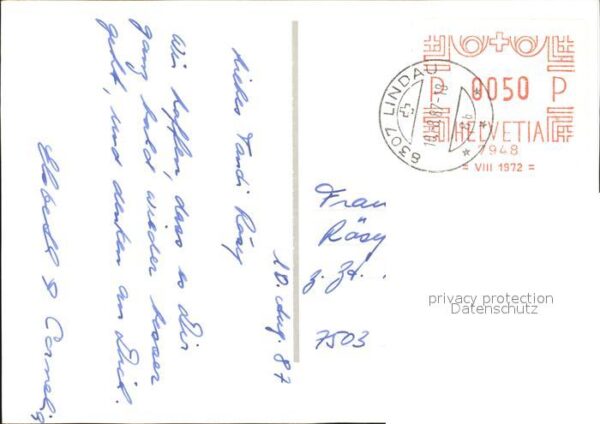 10. Aug. 87
Liebes Tanti Rösy
Wir hoffen, dass es Dir
ganz bald wieder besser
geht, und denken an Dich.
Elsbeth & Cornelia
Frau
Rösy
z. Zt.
7503
8307 LINDAU
P 0050 P
HELVETIA
7948
= VIII 1972 =
privacy protection
Datenschutz